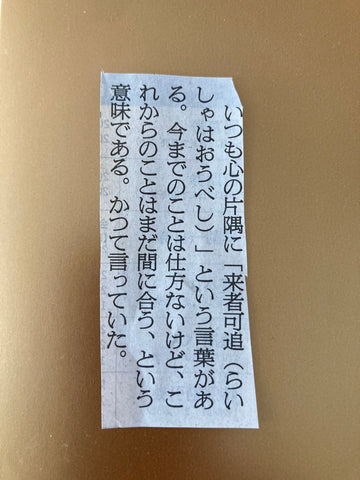 いつも心の片隅に「来者可追（らい
しゃはおうべし）」という言葉があ
る。今までのことは仕方ないけど、こ
れからのことはまだ間に合う、という
意味である。かつて言っていた。